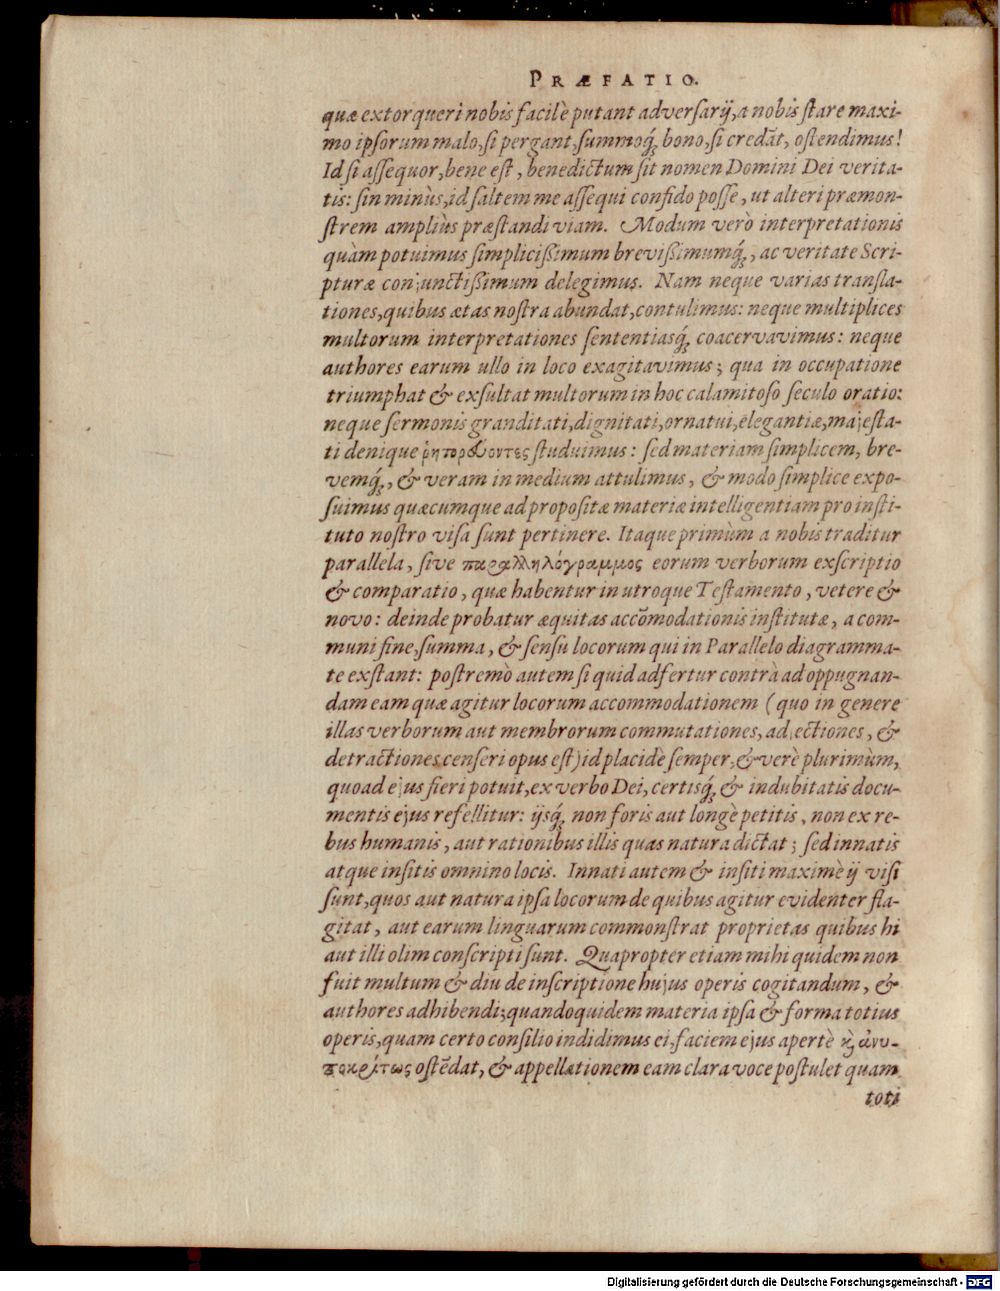 PRÆFATIO.
quæ extorqueri nobis facilè putant adversarij, a nobis stare maxi-
mo ipsorum malo, si pergant, summoq́; bono, si credāt, ostendimus!
Id si assequor, bene est, benedictum sit nomen Domini Dei verita-
tis: sin minùs, id saltem me assequi confido posse, ut alteri præmon-
strem ampliùs præstandi viam. Modum verò interpretationis
quàm potuimus simplicißimum brevißimumq́;, ac veritate Scri-
pturæ conjunctißimum delegimus. Nam neque varias transla-
tiones, quibus ætas nostra abundat, contulimus: neque multiplices
multorum interpretationes sententiasq́; coacervavimus: neque
authores earum ullo in loco exagitavimus; qua in occupatione
triumphat & exsultat multorum in hoc calamitoso seculo oratio:
neque sermonis granditati, dignitati, ornatui, elegantiæ, majesta-
ti denique ῥητορεύοντες studuimus: sed materiam simplicem, bre-
vemq́;, & veram in medium attulimus, & modo simplice expo-
suimus quæcumque ad propositæ materiæ intelligentiam pro insti-
tuto nostro visa sunt pertinere. Itaque primùm a nobis traditur
parallela, sive παραλληλόγραμμος eorum verborum exscriptio
& comparatio, quæ habentur in utroque Testamento, vetere &
novo: deinde probatur æquitas accōmodationis institutæ, a com-
muni fine, summa, & sensu locorum qui in Parallelo diagramma-
te exstant: postremò autem si quid adfertur contrà ad oppugnan-
dam eam quæ agitur locorum accommodationem (quo in genere
illas verborum aut membrorum commutationes, adjectiones, &
detractiones censeri opus est) id placidè semper, & verè plurimùm,
quoad ejus fieri potuit, ex verbo Dei, certisq́; & indubitatis docu-
mentis ejus refellitur: ijsq́; non foris aut longè petitis, non ex re-
bus humanis, aut rationibus illis quas natura dictat; sed innatis
atque insitis omnino locis. Innati autem & insiti maximè ij visi
sunt, quos aut natura ipsa locorum de quibus agitur evidenter fla-
gitat, aut earum linguarum commonstrat proprietas quibus hi
aut illi olim conscripti sunt. Quapropter etiam mihi quidem non
fuit multum & diu de inscriptione hujus operis cogitandum, &
authores adhibendi; quandoquidem materia ipsa & forma totius
operis, quam certo consilio indidimus ei, faciem ejus apertè ϗ̀ ἀνυ-
ποκρίτως ostēdat, & appellationem eam clara voce postulet quam
toti
Digitalisierung gefördert durch die Deutsche Forschungsgemeinschaft - DFG